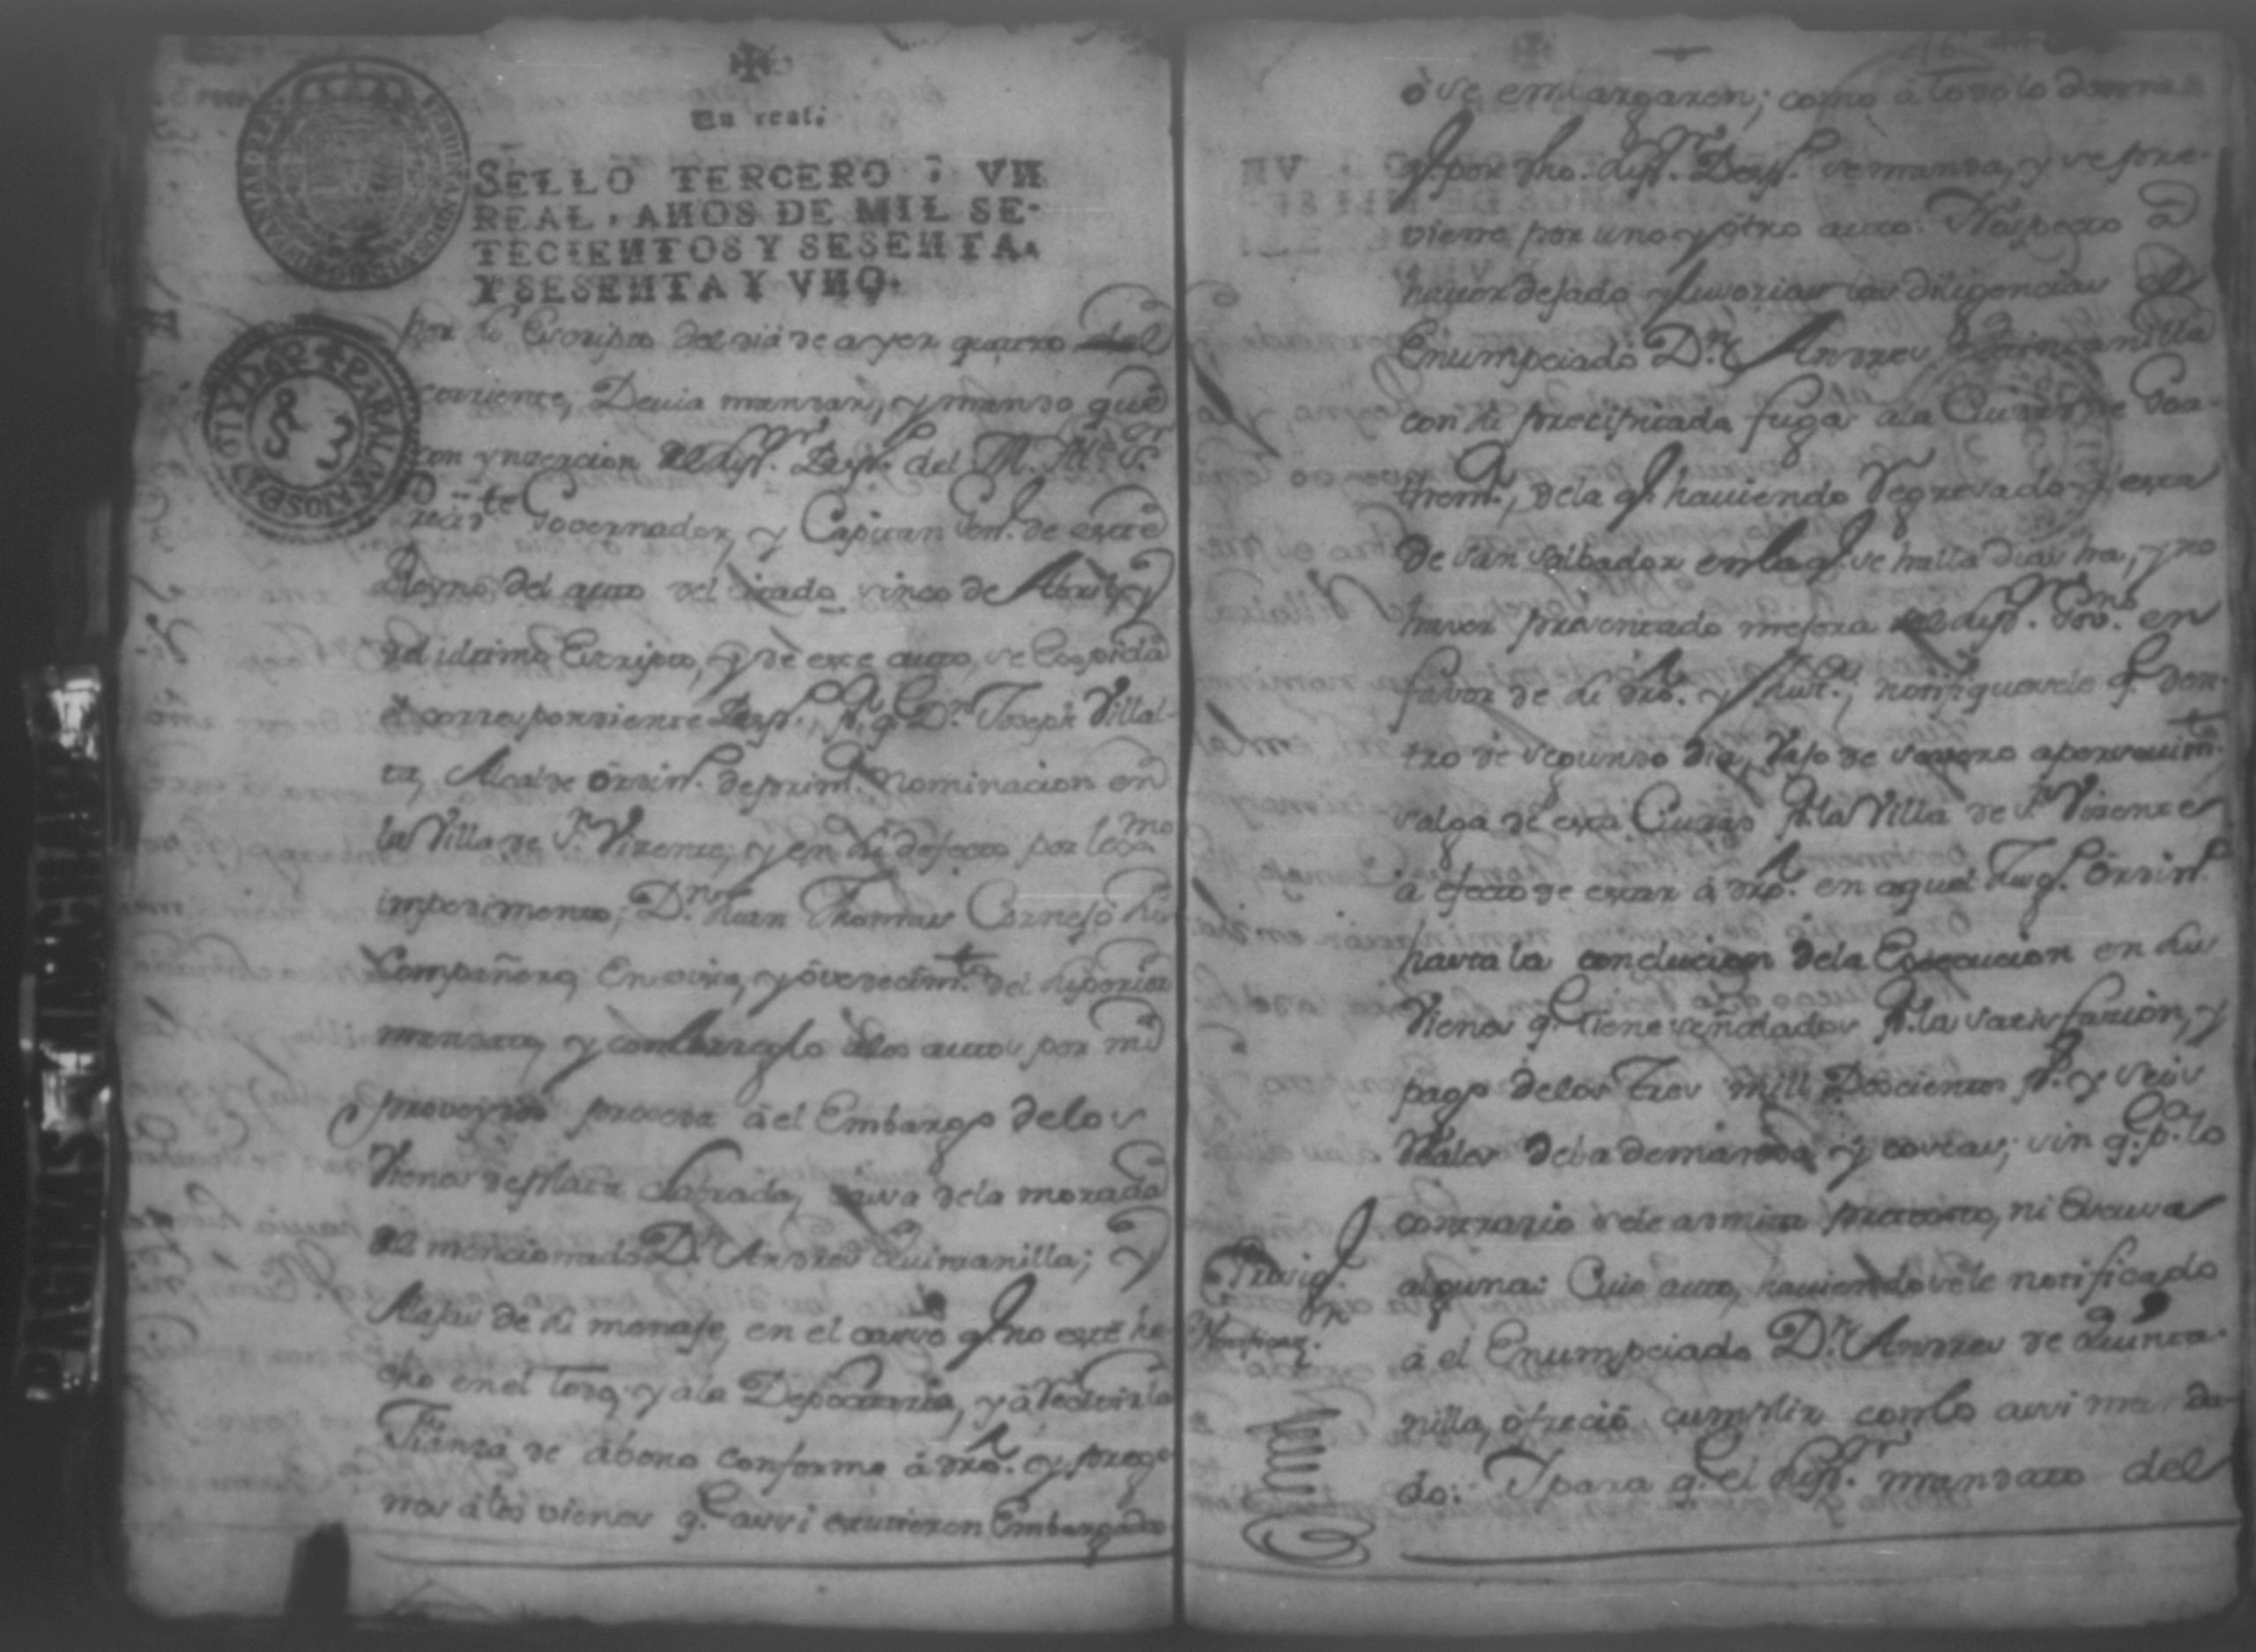 Un real.
SELLO TERCERO, VN
REAL, AÑOS DE MIL SE-
TECIENTOS Y SESENTA,
Y SESENTA Y VNO.
por su Escripto del dia de ayer quatro del
corriente, Devia mandar, y mando que
con ynsercion del Supr. Desp. del M. Itre Sr
Presidte Governador, y Capitan Genl. de este
Reyno, del auto del citado sinco de Abril, y
del ultimo Escripto, y de este auto, se Espida
el correspondiente Desp., pa. q. Dn. Joseph Villal-
ta, Alcalde órdino. de prima. Nominacion en
la Villa de Sn. Vizente, y en su defecto por legmo
impedimento, Dn. Juan Thomas Cornejo su
Compañero, En vista, y óvedecimto. del Superior
mandato, y con arreglo a los autos por mi
proveydos proceda á el Embargo de los
Vienes de plata labrada, casa de la morada
del mencionado Dn. Andres Quintanilla; y
Alajas de su menaje, en el casso q. no esté he-
cho en el todo, y a la Depocitaria, y á Recivir la
Fianza de ábono conforme á dro. y prego-
nes á los vienes q. assi estuvieren Embargados
ó se embargaron; como á todo lo demas
q. por dho. Supr. Desp. se manda, y se pre-
viene por uno y ótro auto. Respecto á
haver dejado ylusorias las diligencias el
Enumpciado Dn. Andres Quintanilla
con su precipitada fuga a la Ciudad de Goa-
thema., de la q. haviendo Regresado a esta
de San Salbador en la q. se halla dias ha, y no
haver presentado mejora del Supr. Govno. en
favor de su dro. y Justa., notifiquesele q. den-
tro de segundo dia, vajo de severo apercevimto.
salga de esta Ciudad pa. la Villa de Sn. Vizente
á efecto de estar á dro. en aquel Juzgo. Ordino.
hasta la conclucion de la Execucion en sus
Vienes q. tiene señalados pa. la satisfacion, y
pago de los Tres mill Doscientos ps. y seis
Reales de la demanda, y costas; sin q. pa. lo
contrario se le admita pretexto, ni Escusa
alguna: Cuio auto, haviendosele notificado
á el Enumpciado Dn. Andres de Quinta-
nilla, ófreció cumplir con lo assi manda-
do: Y para q. el Supr. mandato del